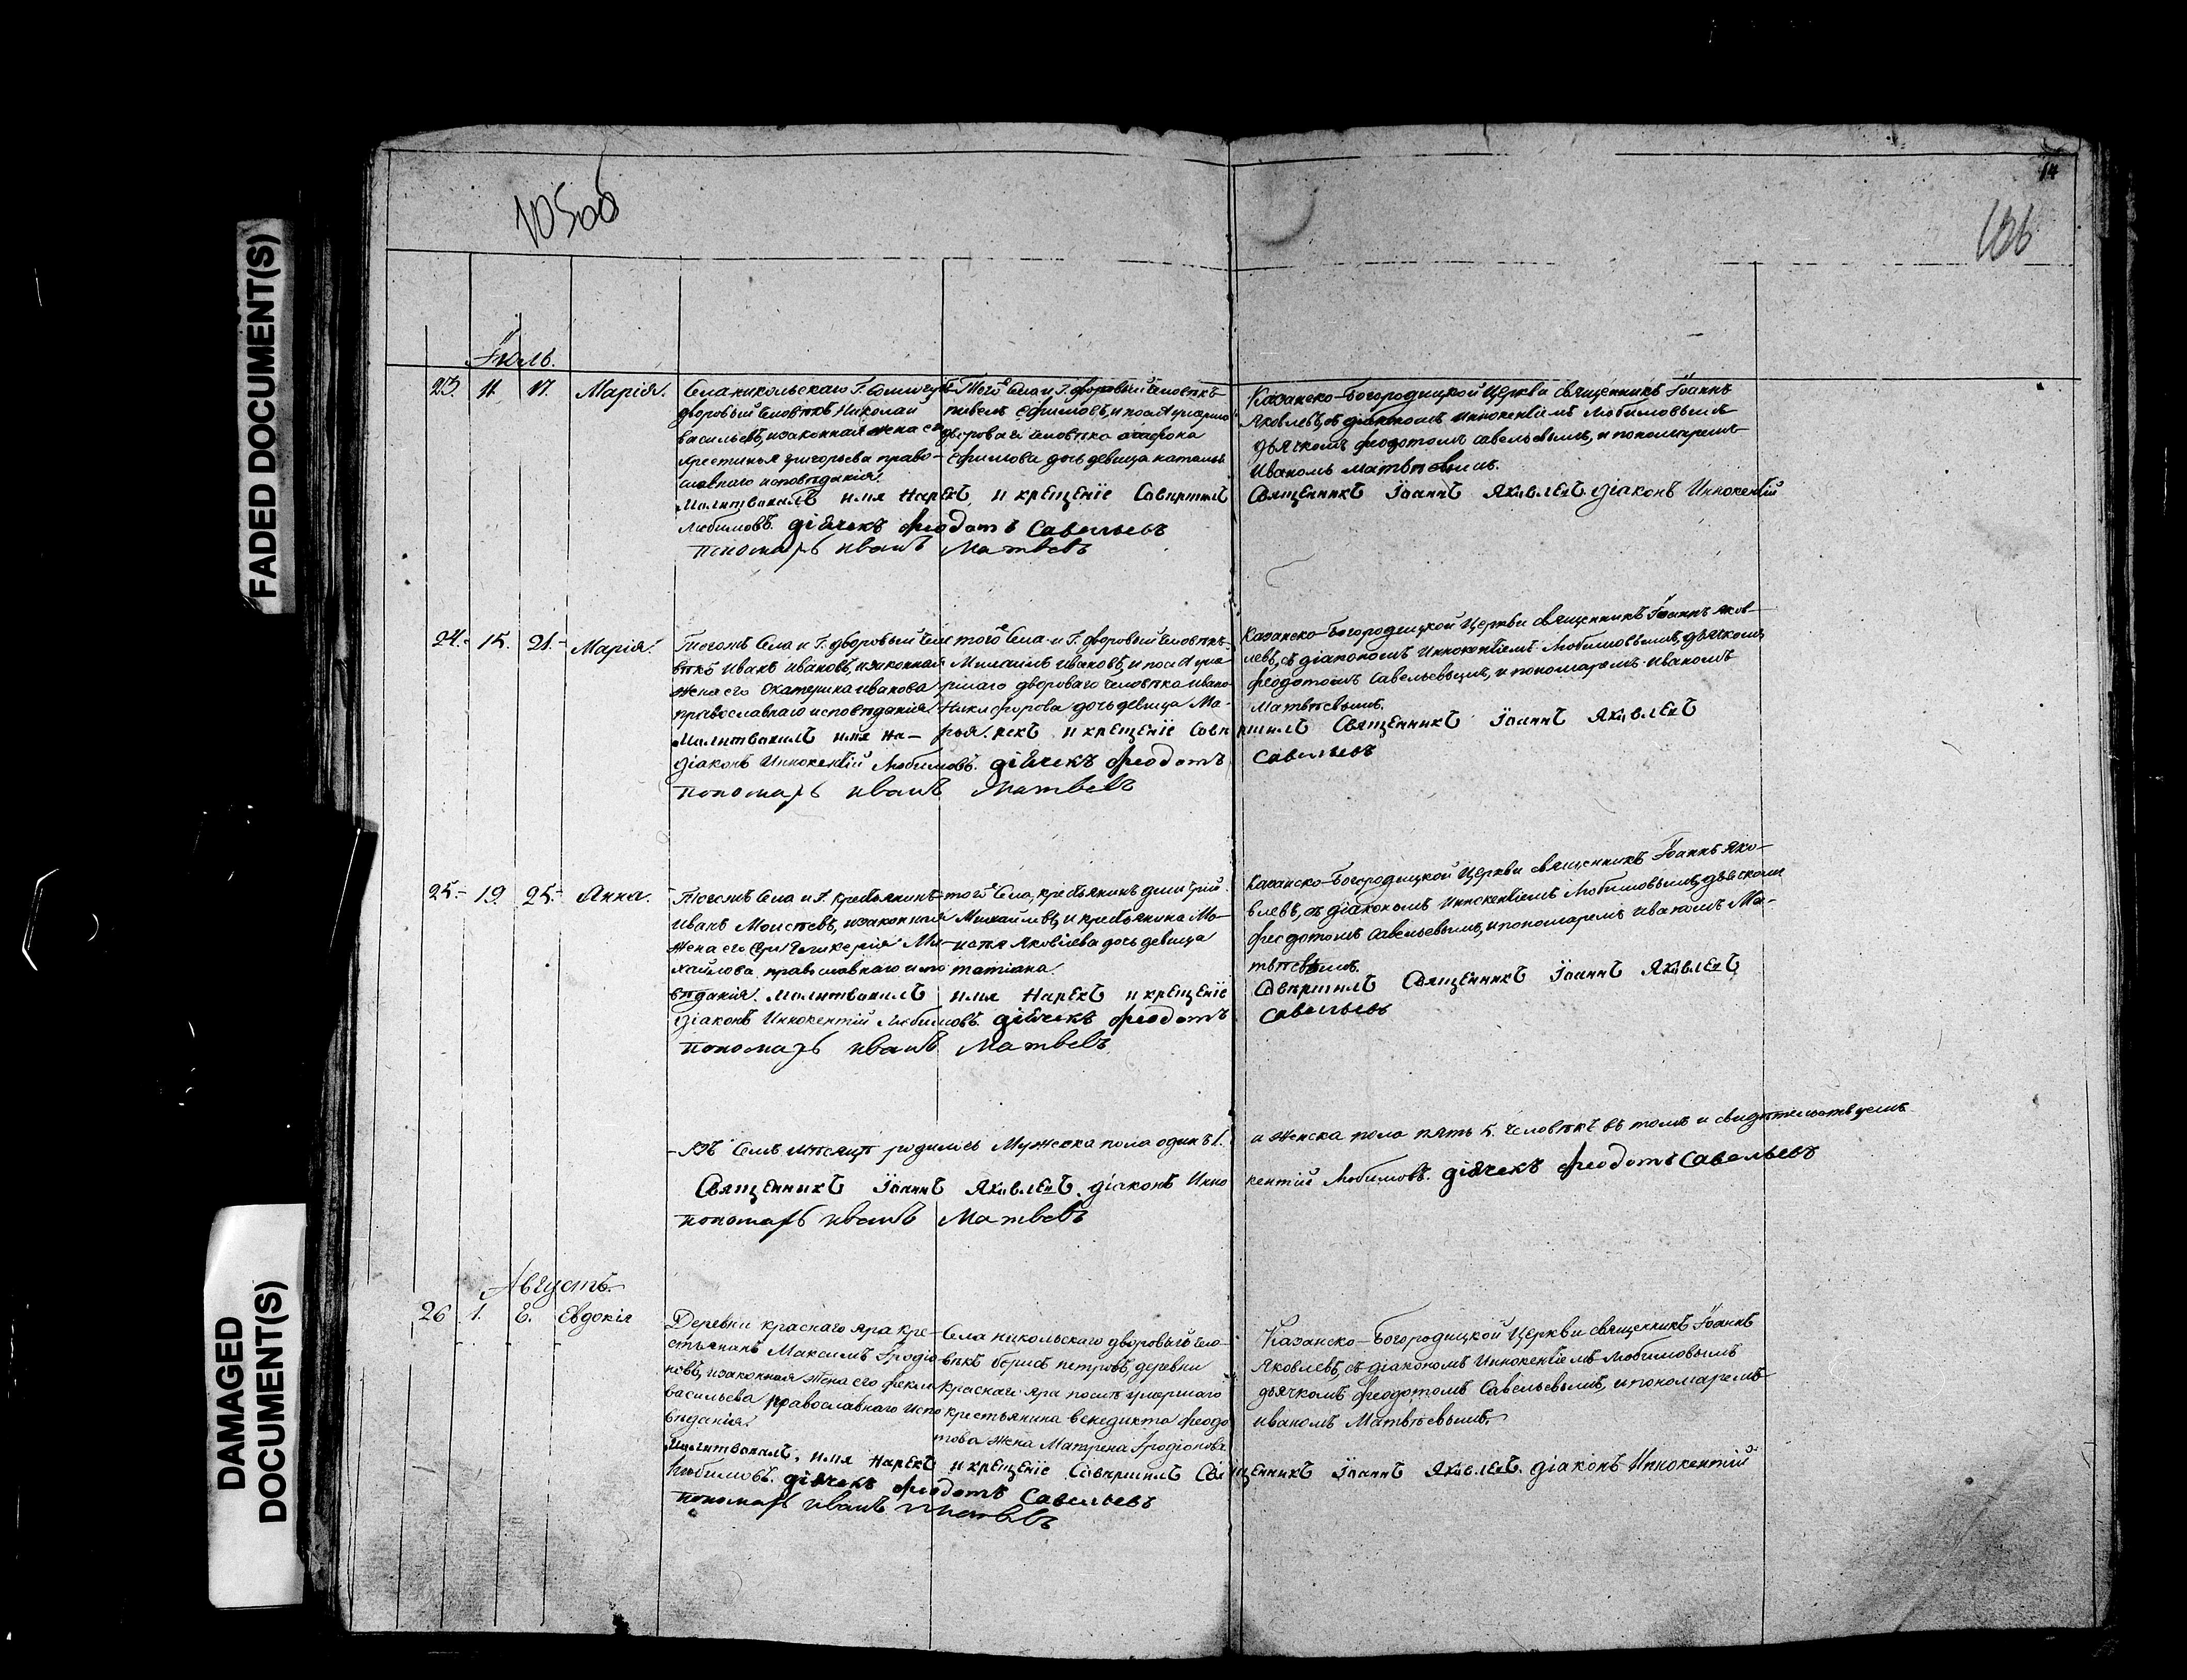 FADED DOCUMENT(S)
DAMAGED
DOCUMENT(S)
105об
14
106
Іюль.
23. 11. 17. Марія.
Села никольскаго Г.
дворовый человѣкъ Николаи
васильевъ, и законная жена его
христинья григорьева право-
славнаго исповѣданія.
Того Села и Г. дворовый человѣкъ
павелъ Ефимовъ, и послѣ умершаго
двороваго человѣка агафона
Ефимова дочь девица наталья
Казанско-Богородицкой Церкви священникъ Іоаннъ
Яковлевъ, съ діакономъ иннокентіемъ Любимовымъ
дьячкомъ феодотомъ савельевымъ, и пономаремъ
Иваномъ матвѣевымъ.
Молитвовалъ имя нарекъ и крещеніе Совершилъ Священникъ Іоаннъ Яковлевъ. діаконъ Иннокентій
Любимовъ. дьячекъ феодотъ Савельевъ
пономарь иванъ Матвевъ
24. 15. 21. Марія.
Тогожъ Села и Г. дворовый чело
вѣкъ Иванъ ивановъ, и законная
жена его Екатерина иванова
православнаго исповѣданія.
того Села и Г. дворовый человѣкъ
Михаилъ ивановъ, и послѣ уме
ршаго двороваго человѣка ивана
Никифорова дочь девица Ма-
рья.
Казанско-Богородицкой Церкви священникъ Іоаннъ яков-
левъ, съ діакономъ Иннокентіемъ Любимовымъ, дьячкомъ
феодотомъ Савельевымъ, и пономаремъ Иваномъ
Матвѣевымъ.
Молитвовалъ имя на- рекъ и крещеніе Совершилъ Священникъ Іоаннъ Яковлевъ
діаконъ Иннокентій Любимовъ. дьячекъ феодотъ Савельевъ
пономарь иванъ Матвевъ
25. 19. 25. Анна.
Тогожъ Села и Г. крестьянинъ
иванъ Моисѣевъ, и законная
жена его Гликерія Ми-
хайлова, православнаго испо
вѣданія.
того Села, крестьянинъ димитрій
Михайловъ, и крестьянина Мо-
исѣя Яковлева дочь девица
татіана.
Казанско-Богородицкой Церкви священникъ Іоаннъ Яко-
влевъ, съ діакономъ Иннокентіемъ Любимовымъ, дьячкомъ
феодотомъ савельевымъ, и пономаремъ иваномъ Ма-
твѣевымъ.
Молитвовалъ имя нарекъ и крещеніе Совершилъ Священникъ Іоаннъ Яковлевъ
діаконъ Иннокентій Любимовъ. дьячекъ феодотъ Савельевъ
пономарь иванъ Матвевъ
Въ Семъ мѣсяцѣ родилось Мужеска пола одинъ 1. а женска пола пять 5. человѣкъ въ томъ и свидѣтельствуемъ
Священникъ Іоаннъ Яковлевъ. діаконъ Иннокентій Любимовъ. дьячекъ феодотъ Савельевъ
пономарь иванъ Матвевъ
Августъ.
26 1. Евдокія
Деревни краснаго яра кре-
стьянинъ Максимъ Іродіо
новъ, и законная жена его фекла
васильева православнаго испо
вѣданія.
Села никольскаго дворовый чело
вѣкъ борисъ петровъ, деревни
Краснаго яра послѣ умершаго
крестьянина венедикта феодо
това жена Матрена Іродіонова
Казанско-Богородицкой Церкви священникъ Іоаннъ
Яковлевъ, съ діакономъ Иннокентіемъ Любимовымъ
дьячкомъ феодотомъ Савельевымъ, и пономаремъ
иваномъ Матвѣевымъ.
Молитвовалъ, имя нарекъ и крещеніе Совершилъ Священникъ Іоаннъ Яковлевъ. діаконъ Иннокентій
Любимовъ. дьячекъ феодотъ Савельевъ
пономарь иванъ Матвевъ